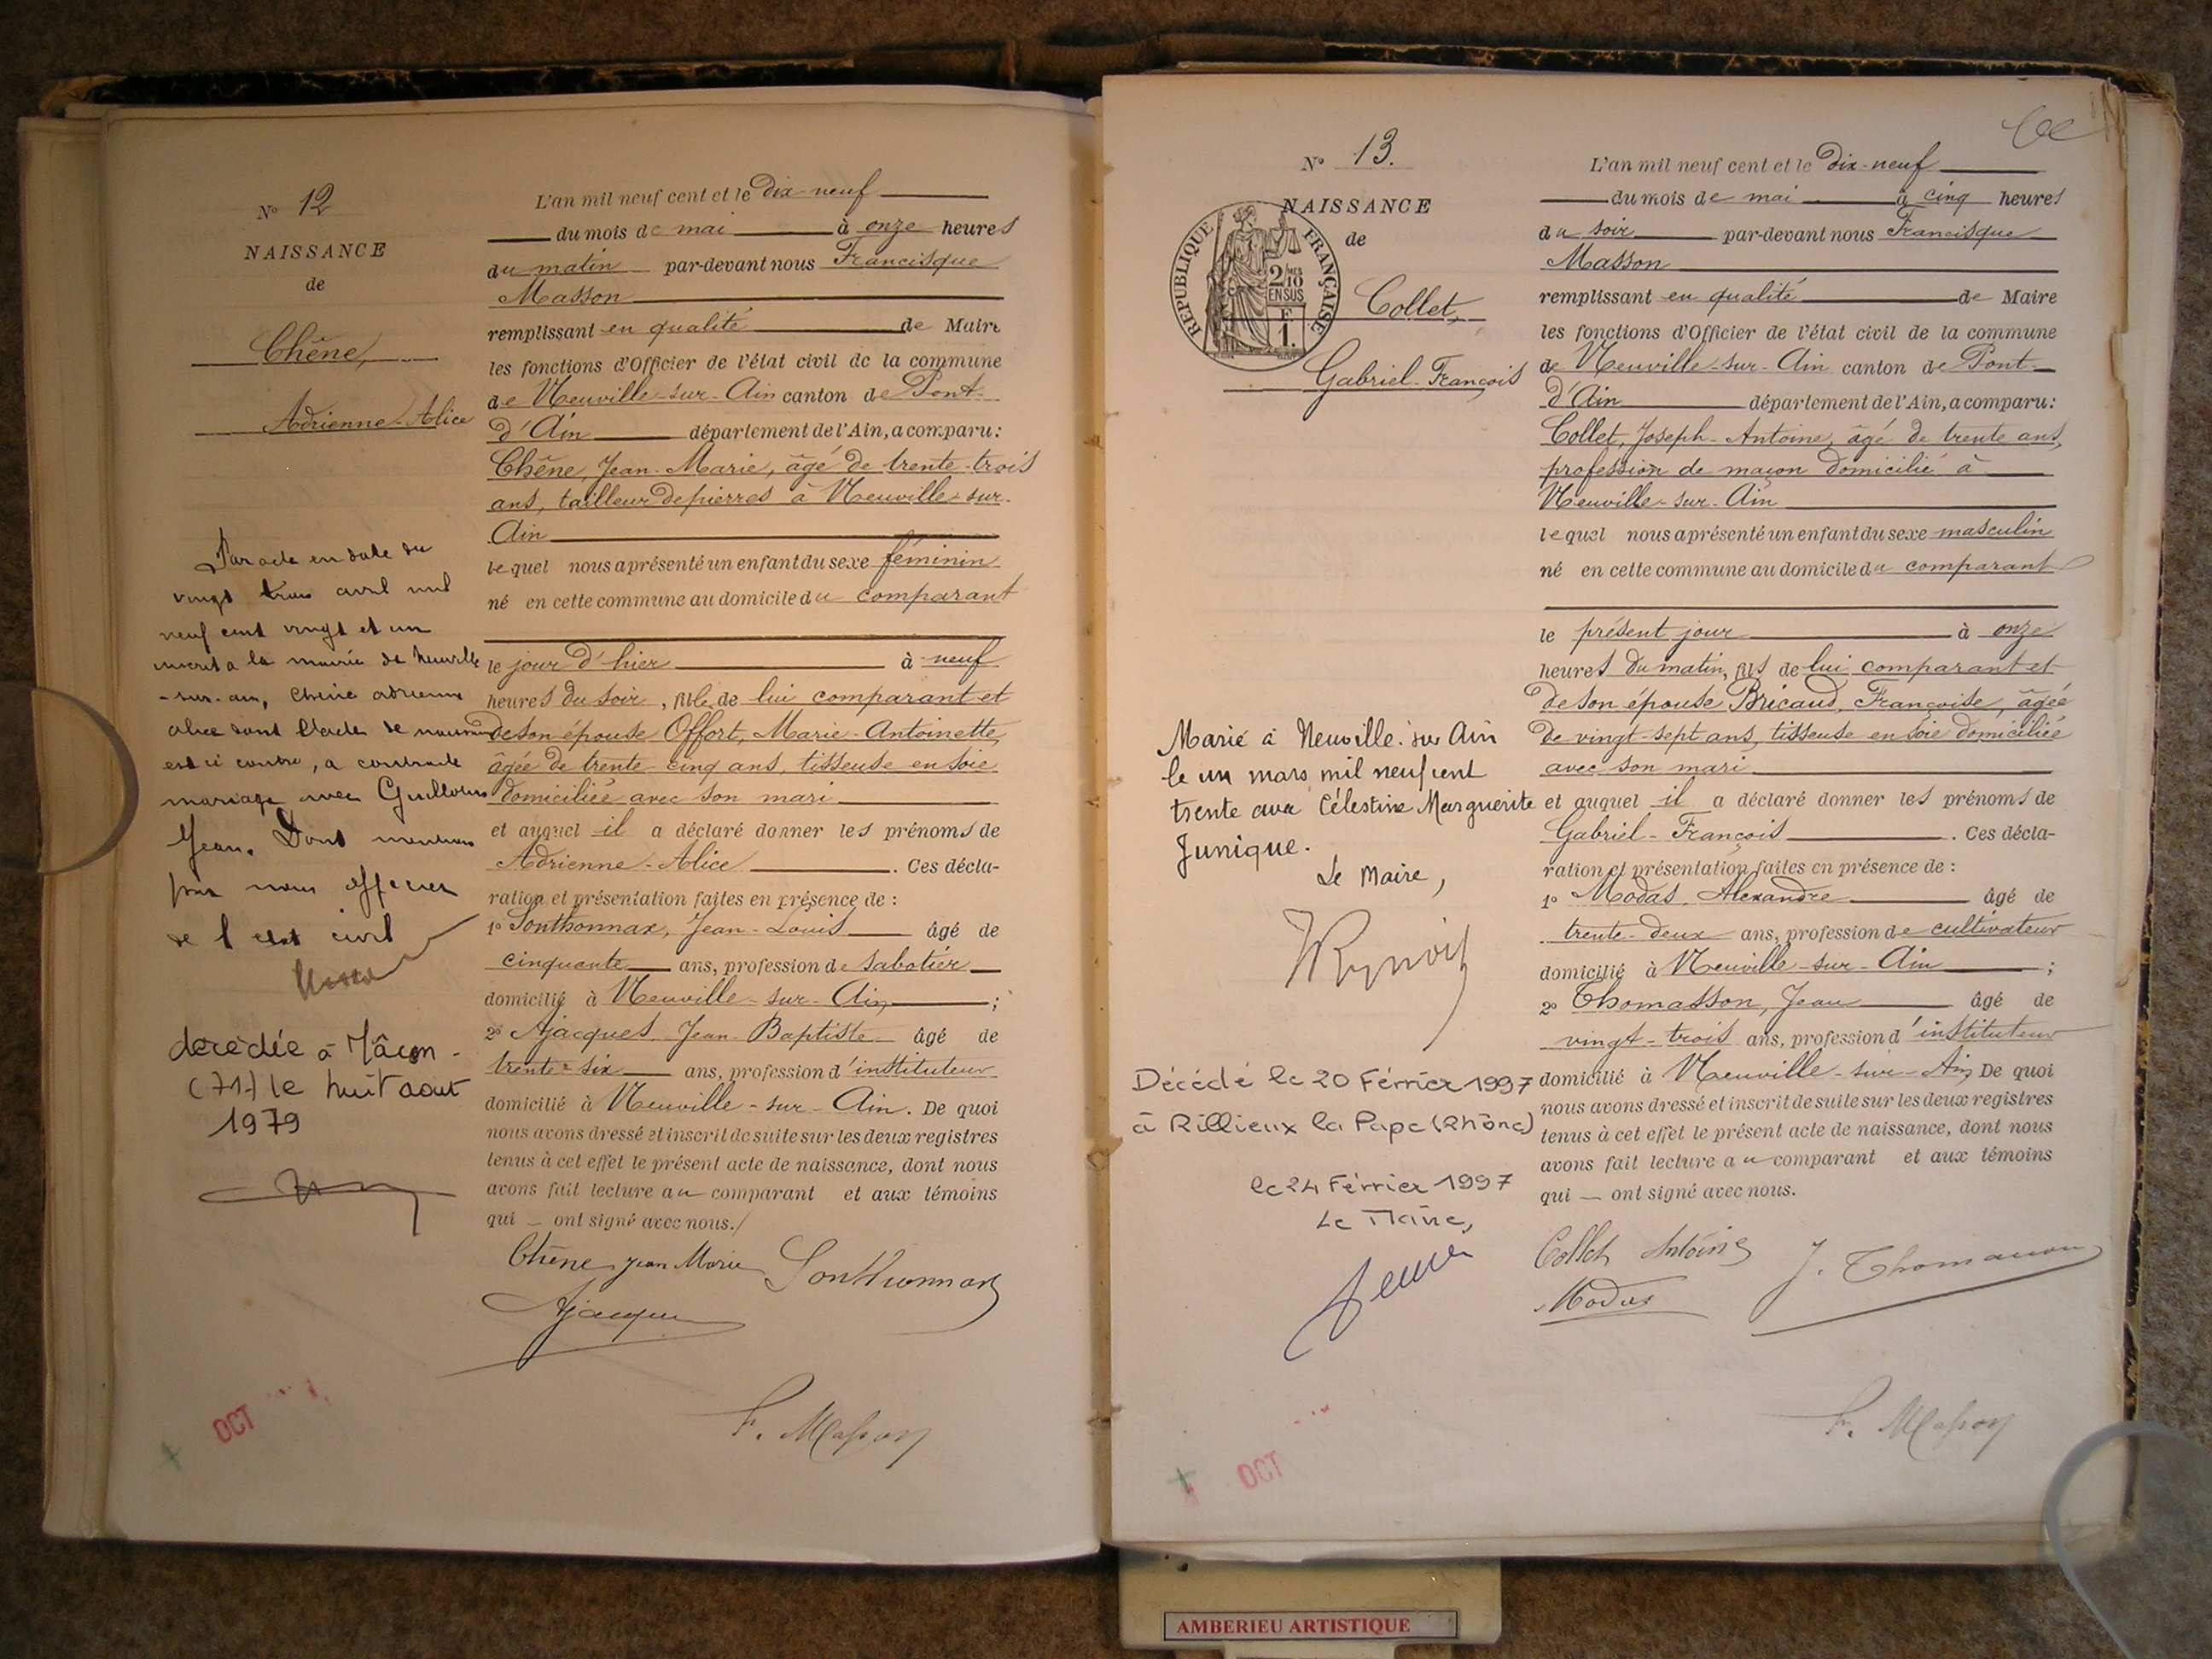 N° 12
NAISSANCE
de
Chêne,
Adrienne-Alice
Par acte en date du
vingt trois avril mil
neuf cent vingt et un
inscrit à la mairie de Neuville
-sur-ain, Chêne adrienne
alice dont l'acte de naissance
est ci contre, a contracté
mariage avec
Jean. Dont mention
par nous officier
de l'etat civil
décédée à Mâcon
(71) le huit aout
1979
L'an mil neuf cent et le Dix-neuf
du mois de mai à onze heures
du matin par-devant nous Francisque
Masson
remplissant en qualité de Maire
les fonctions d'Officier de l'état civil de la commune
de Neuville-sur-Ain canton de Pont-
d'Ain département de l'Ain, a comparu:
Chêne, Jean-Marie, âgé de trente-trois
ans, tailleur de pierres à Neuville-sur-
Ain
lequel nous a présenté un enfant du sexe féminin
né en cette commune au domicile du comparant
le jour d'hier à neuf
heures du soir, fille de lui comparant et
de son épouse Offort, Marie-Antoinette,
âgée de trente-cinq ans, tisseuse en soie
domiciliée avec son mari
et auquel il a déclaré donner les prénoms de
Adrienne-Alice. Ces décla-
ration et présentation faites en présence de :
1° Sonthonnax, Jean-Louis âgé de
cinquante ans, profession de sabotier
domicilié à Neuville-sur-Ain ;
2° Ajacques Jean-Baptiste âgé de
trente-six ans, profession d'instituteur
domicilié à Neuville-sur-Ain. De quoi
nous avons dressé et inscrit de suite sur les deux registres
tenus à cet effet le présent acte de naissance, dont nous
avons fait lecture au comparant et aux témoins
qui — ont signé avec nous./
Chêne Jean Marie Sonthonnax
Ajacques
F. Masson
OCT
N° 13.
NAISSANCE
de
REPUBLIQUE FRANÇAISE
2/10
EN SUS
F.
1.
Collet,
Gabriel-François
Marié à Neuville-sur Ain
le un mars mil neuf cent
trente avec Célestine Marguerite
Junique.
Le Maire,
Décédé le 20 Février 1997
à Rillieux la Pape (Rhône)
le 24 Février 1997
Le Maire,
L'an mil neuf cent et le Dix-neuf
du mois de mai à cinq heures
du soir par-devant nous Francisque
Masson
remplissant en qualité de Maire
les fonctions d'Officier de l'état civil de la commune
de Neuville-sur-Ain canton de Pont-
d'Ain département de l'Ain, a comparu:
Collet, Joseph-Antoine, âgé de trente ans,
profession de maçon domicilié à
Neuville-sur-Ain
lequel nous a présenté un enfant du sexe masculin
né en cette commune au domicile du comparant
le présent jour à onze
heures du matin, fils de lui comparant et
de son épouse Bricaud, Françoise, âgée
de vingt-sept ans, tisseuse en soie domiciliée
avec son mari
et auquel il a déclaré donner les prénoms de
Gabriel-François. Ces décla-
ration et présentation faites en présence de :
1° Modas, Alexandre âgé de
trente-deux ans, profession de cultivateur
domicilié à Neuville-sur-Ain ;
2° Thomasson, Jean âgé de
vingt-trois ans, profession d'instituteur
domicilié à Neuville-sur-Ain De quoi
nous avons dressé et inscrit de suite sur les deux registres
tenus à cet effet le présent acte de naissance, dont nous
avons fait lecture au comparant et aux témoins
qui — ont signé avec nous.
Collet Antoine J. Thomasson
Modas
F. Masson
OCT
AMBERIEU ARTISTIQUE